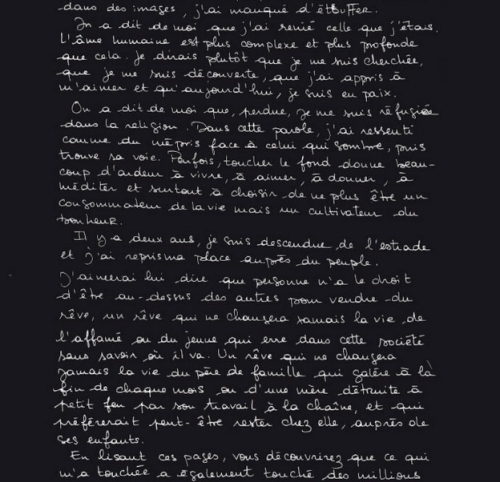 dans des images, j'ai manqué d'étouffer.
On a dit de moi que j'ai renié celle que j'étais.
L'âme humaine est plus complexe et plus profonde
que cela. Je dirais plutôt que je me suis cherchée,
que je me suis découverte, que j'ai appris à
m'aimer et qu'aujourd'hui, je suis en paix.
On a dit de moi que, perdue, je me suis réfugiée
dans la religion. Dans cette parole, j'ai ressenti
comme du mépris face à celui qui sombre, puis
trouve sa voie. Parfois, toucher le fond donne beau-
coup d'ardeur à vivre, à aimer, à donner, à
méditer et surtout à choisir de ne plus être un
consommateur de la vie mais un cultivateur du
bonheur.
Il y a deux ans, je suis descendue de l'estrade
et j'ai repris ma place auprès du peuple.
J'aimerai lui dire que personne n'a le droit
d'être au-dessus des autres pour vendre du
rêve, un rêve qui ne changera jamais la vie de
l'affamé ou du jeune qui erre dans cette société
sans savoir où il va. Un rêve qui ne changera
jamais la vie du père de famille qui galère à la
fin de chaque mois ou d'une mère détruite à
petit feu par son travail à la chaîne, et qui
préfèrerait peut-être rester chez elle, auprès de
ses enfants.
En lisant ces pages, vous découvrirez que ce qui
m'a touchée a également touché des millions